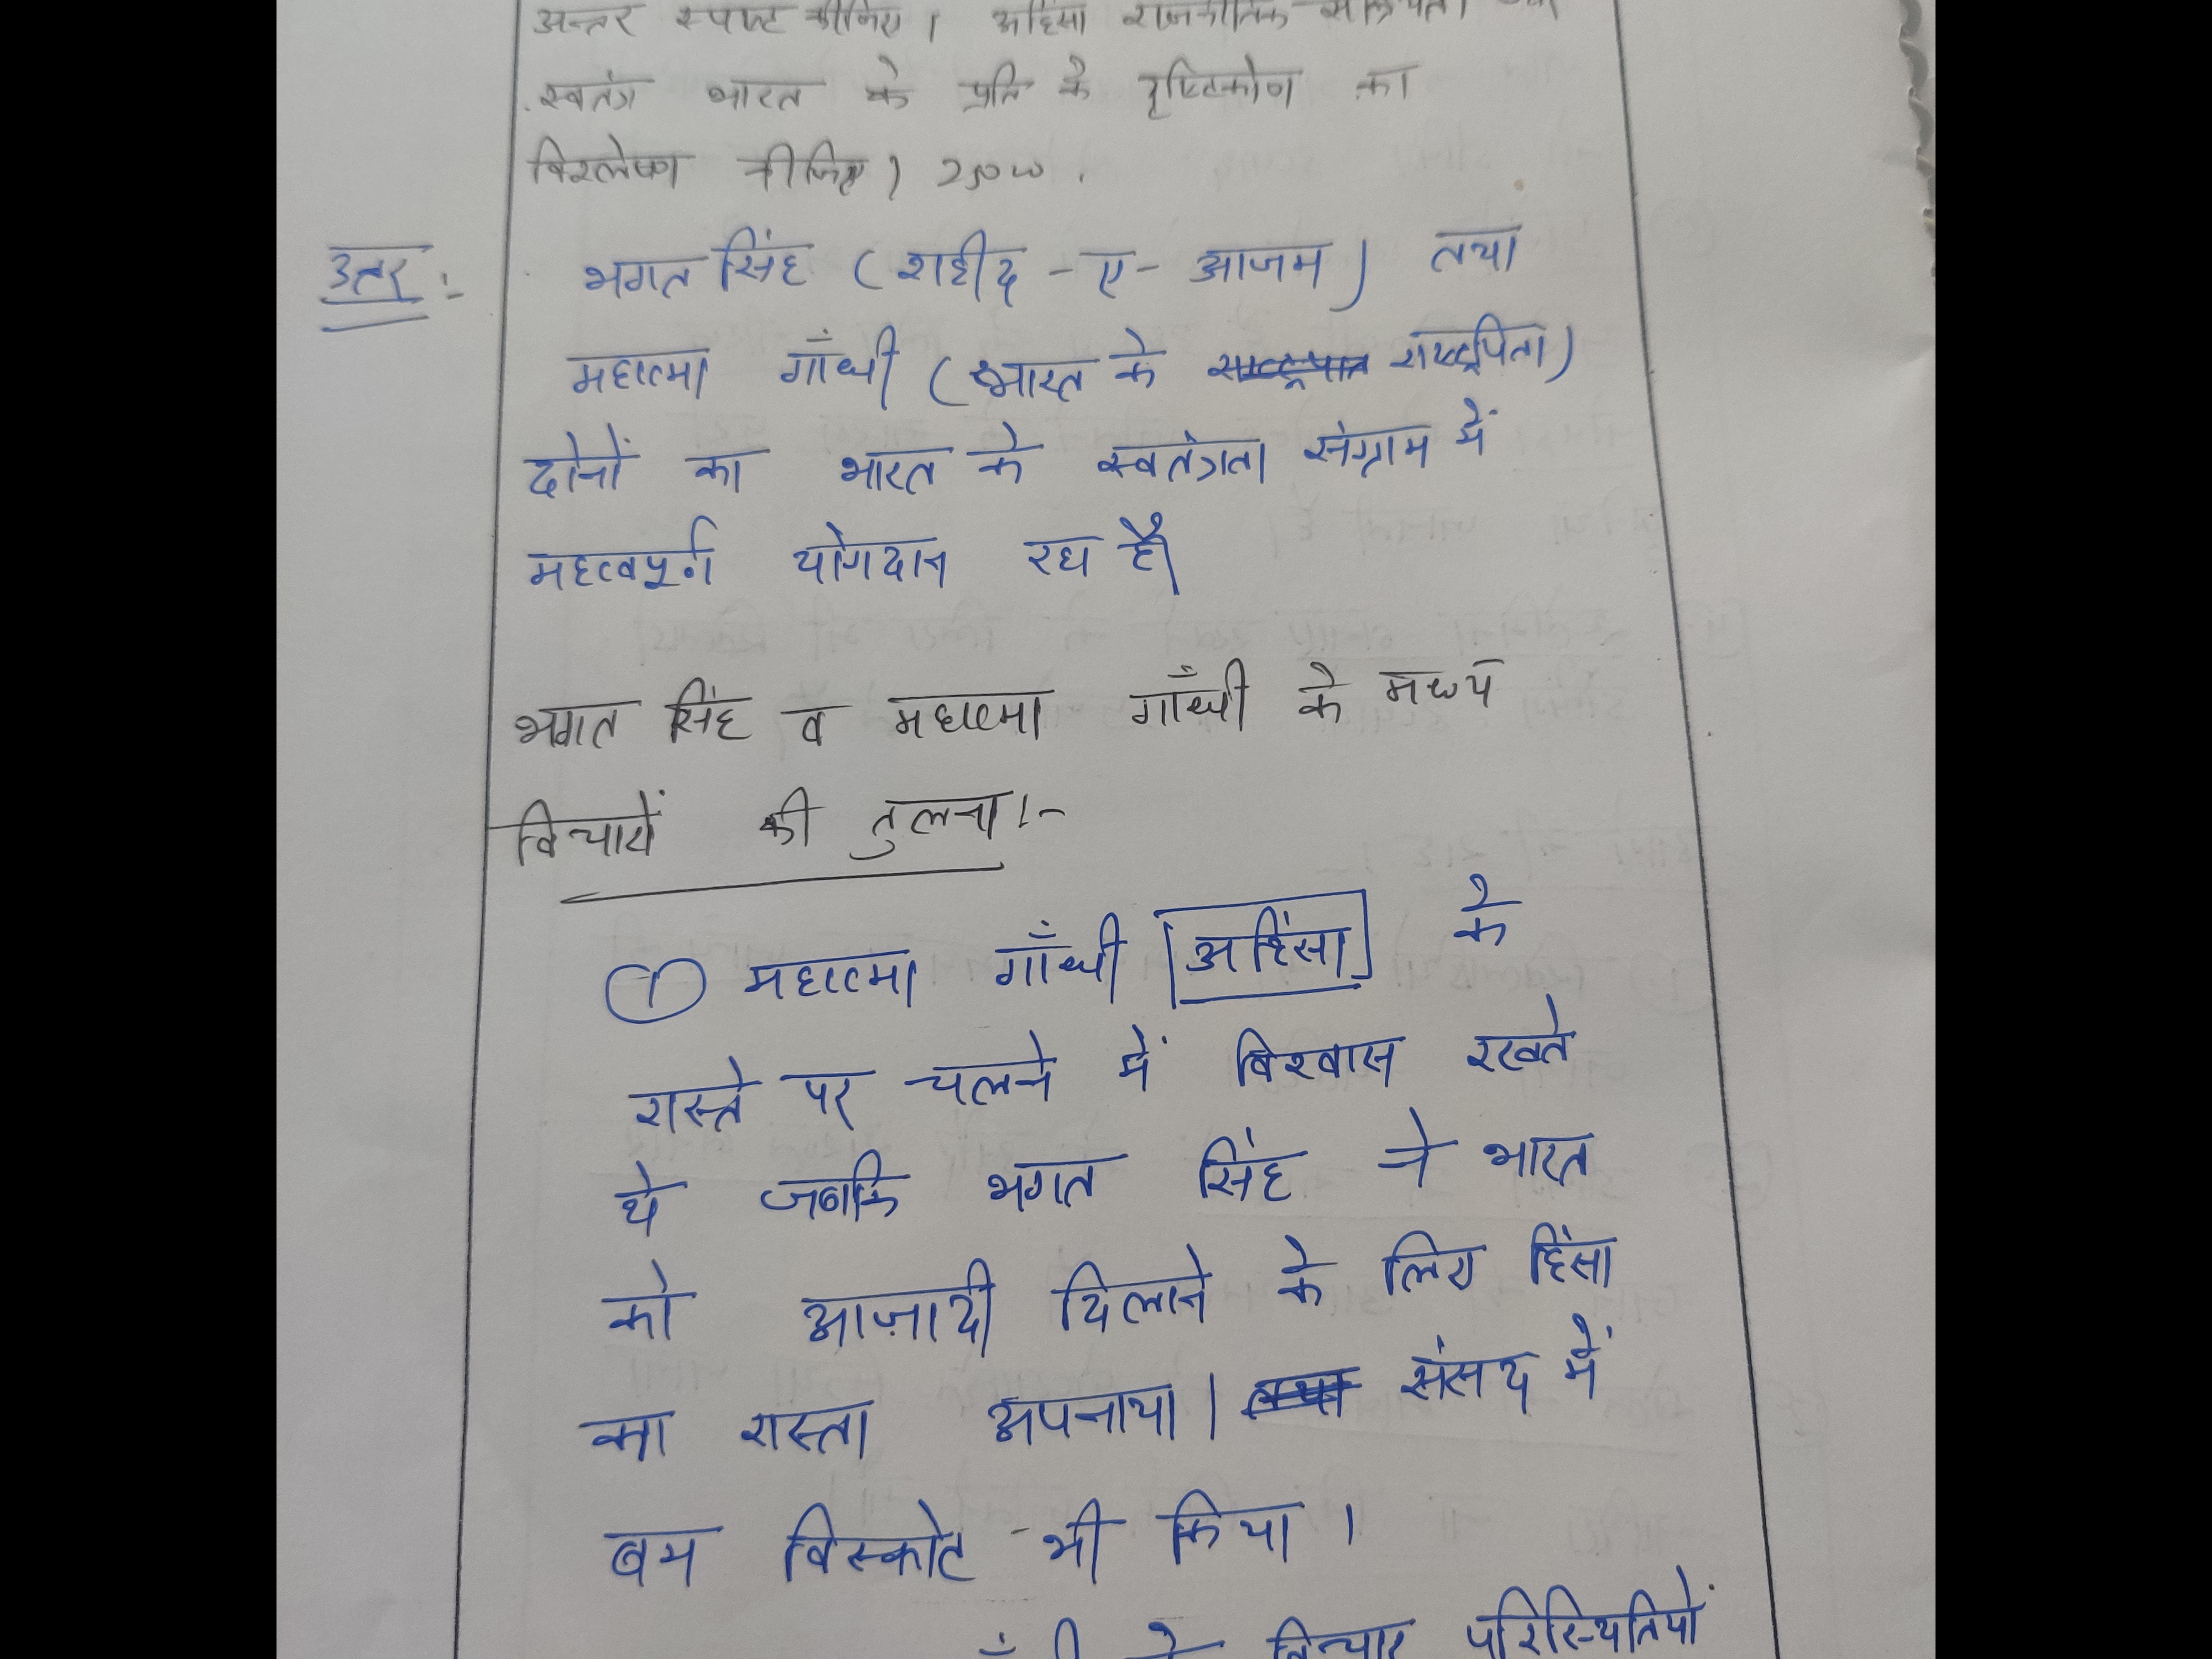 अन्तर स्पष्ट कीजिए। अहिंसा राजनीतिक
स्वतंत्र भारत के प्रति के दृष्टिकोण का
विश्लेषण कीजिए। 250 w.
उत्तर :- भगत सिंह (शहीद - ए - आजम) तथा
महात्मा गाँधी (भारत के राष्ट्रपिता)
दोनों का भारत के स्वतंत्रता संग्राम में
महत्वपूर्ण योगदान रहा है।
भगत सिंह व महात्मा गाँधी के मध्य
विचारों की तुलना:-
① महात्मा गाँधी अहिंसा के
रास्ते पर चलने में विश्वास रखते
थे जबकि भगत सिंह ने भारत
को आज़ादी दिलाने के लिए हिंसा
का रास्ता अपनाया। संसद में
बम विस्फोट भी किया।
के विचार परिस्थितियों